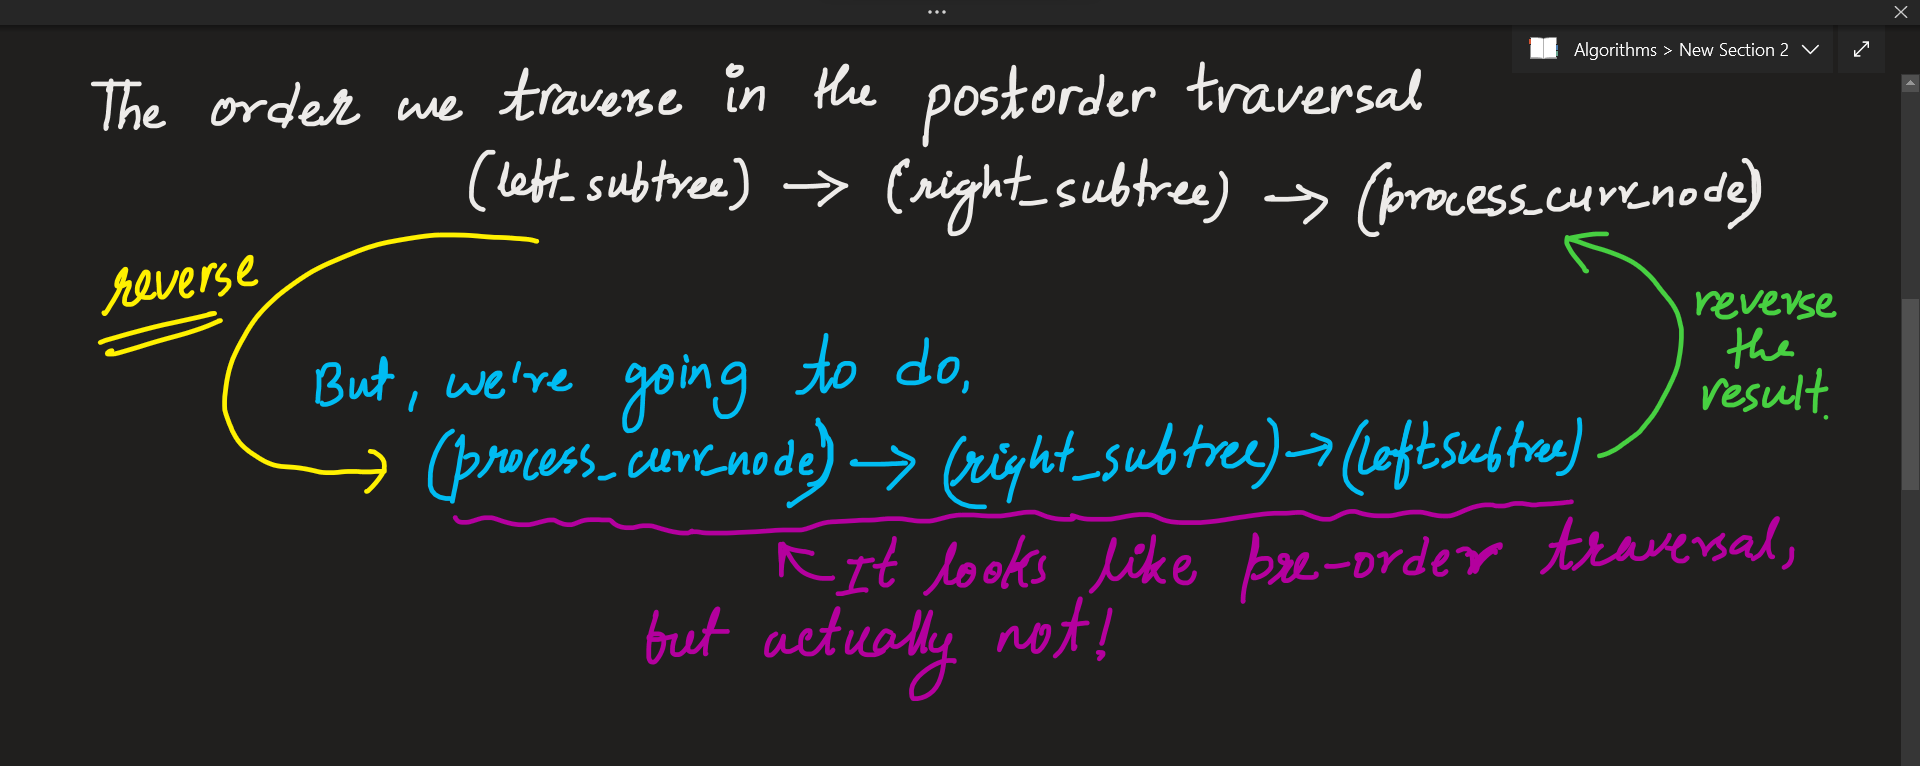 Algorithms > New Section 2
The order we traverse in the postorder traversal
(left_subtree) → (right_subtree) → (process_curr_node)
reverse
reverse
the
result.
But, we're going to do,
(process_curr_node) → (right_subtree) → (left_subtree)
It looks like pre-order traversal,
but actually not!